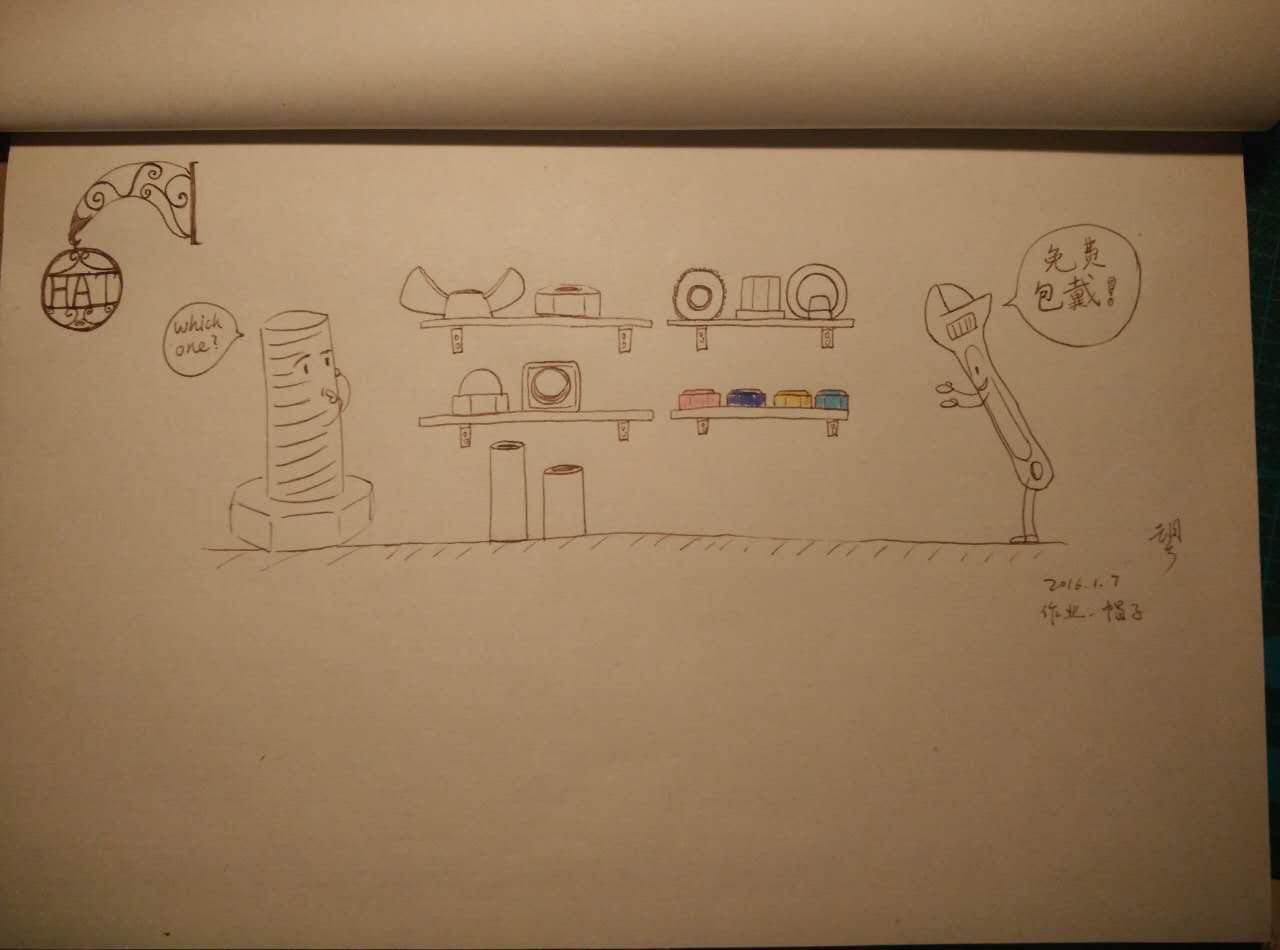 HAT
which
one?
免费
包戴!
2016.1.7
作业-帽子